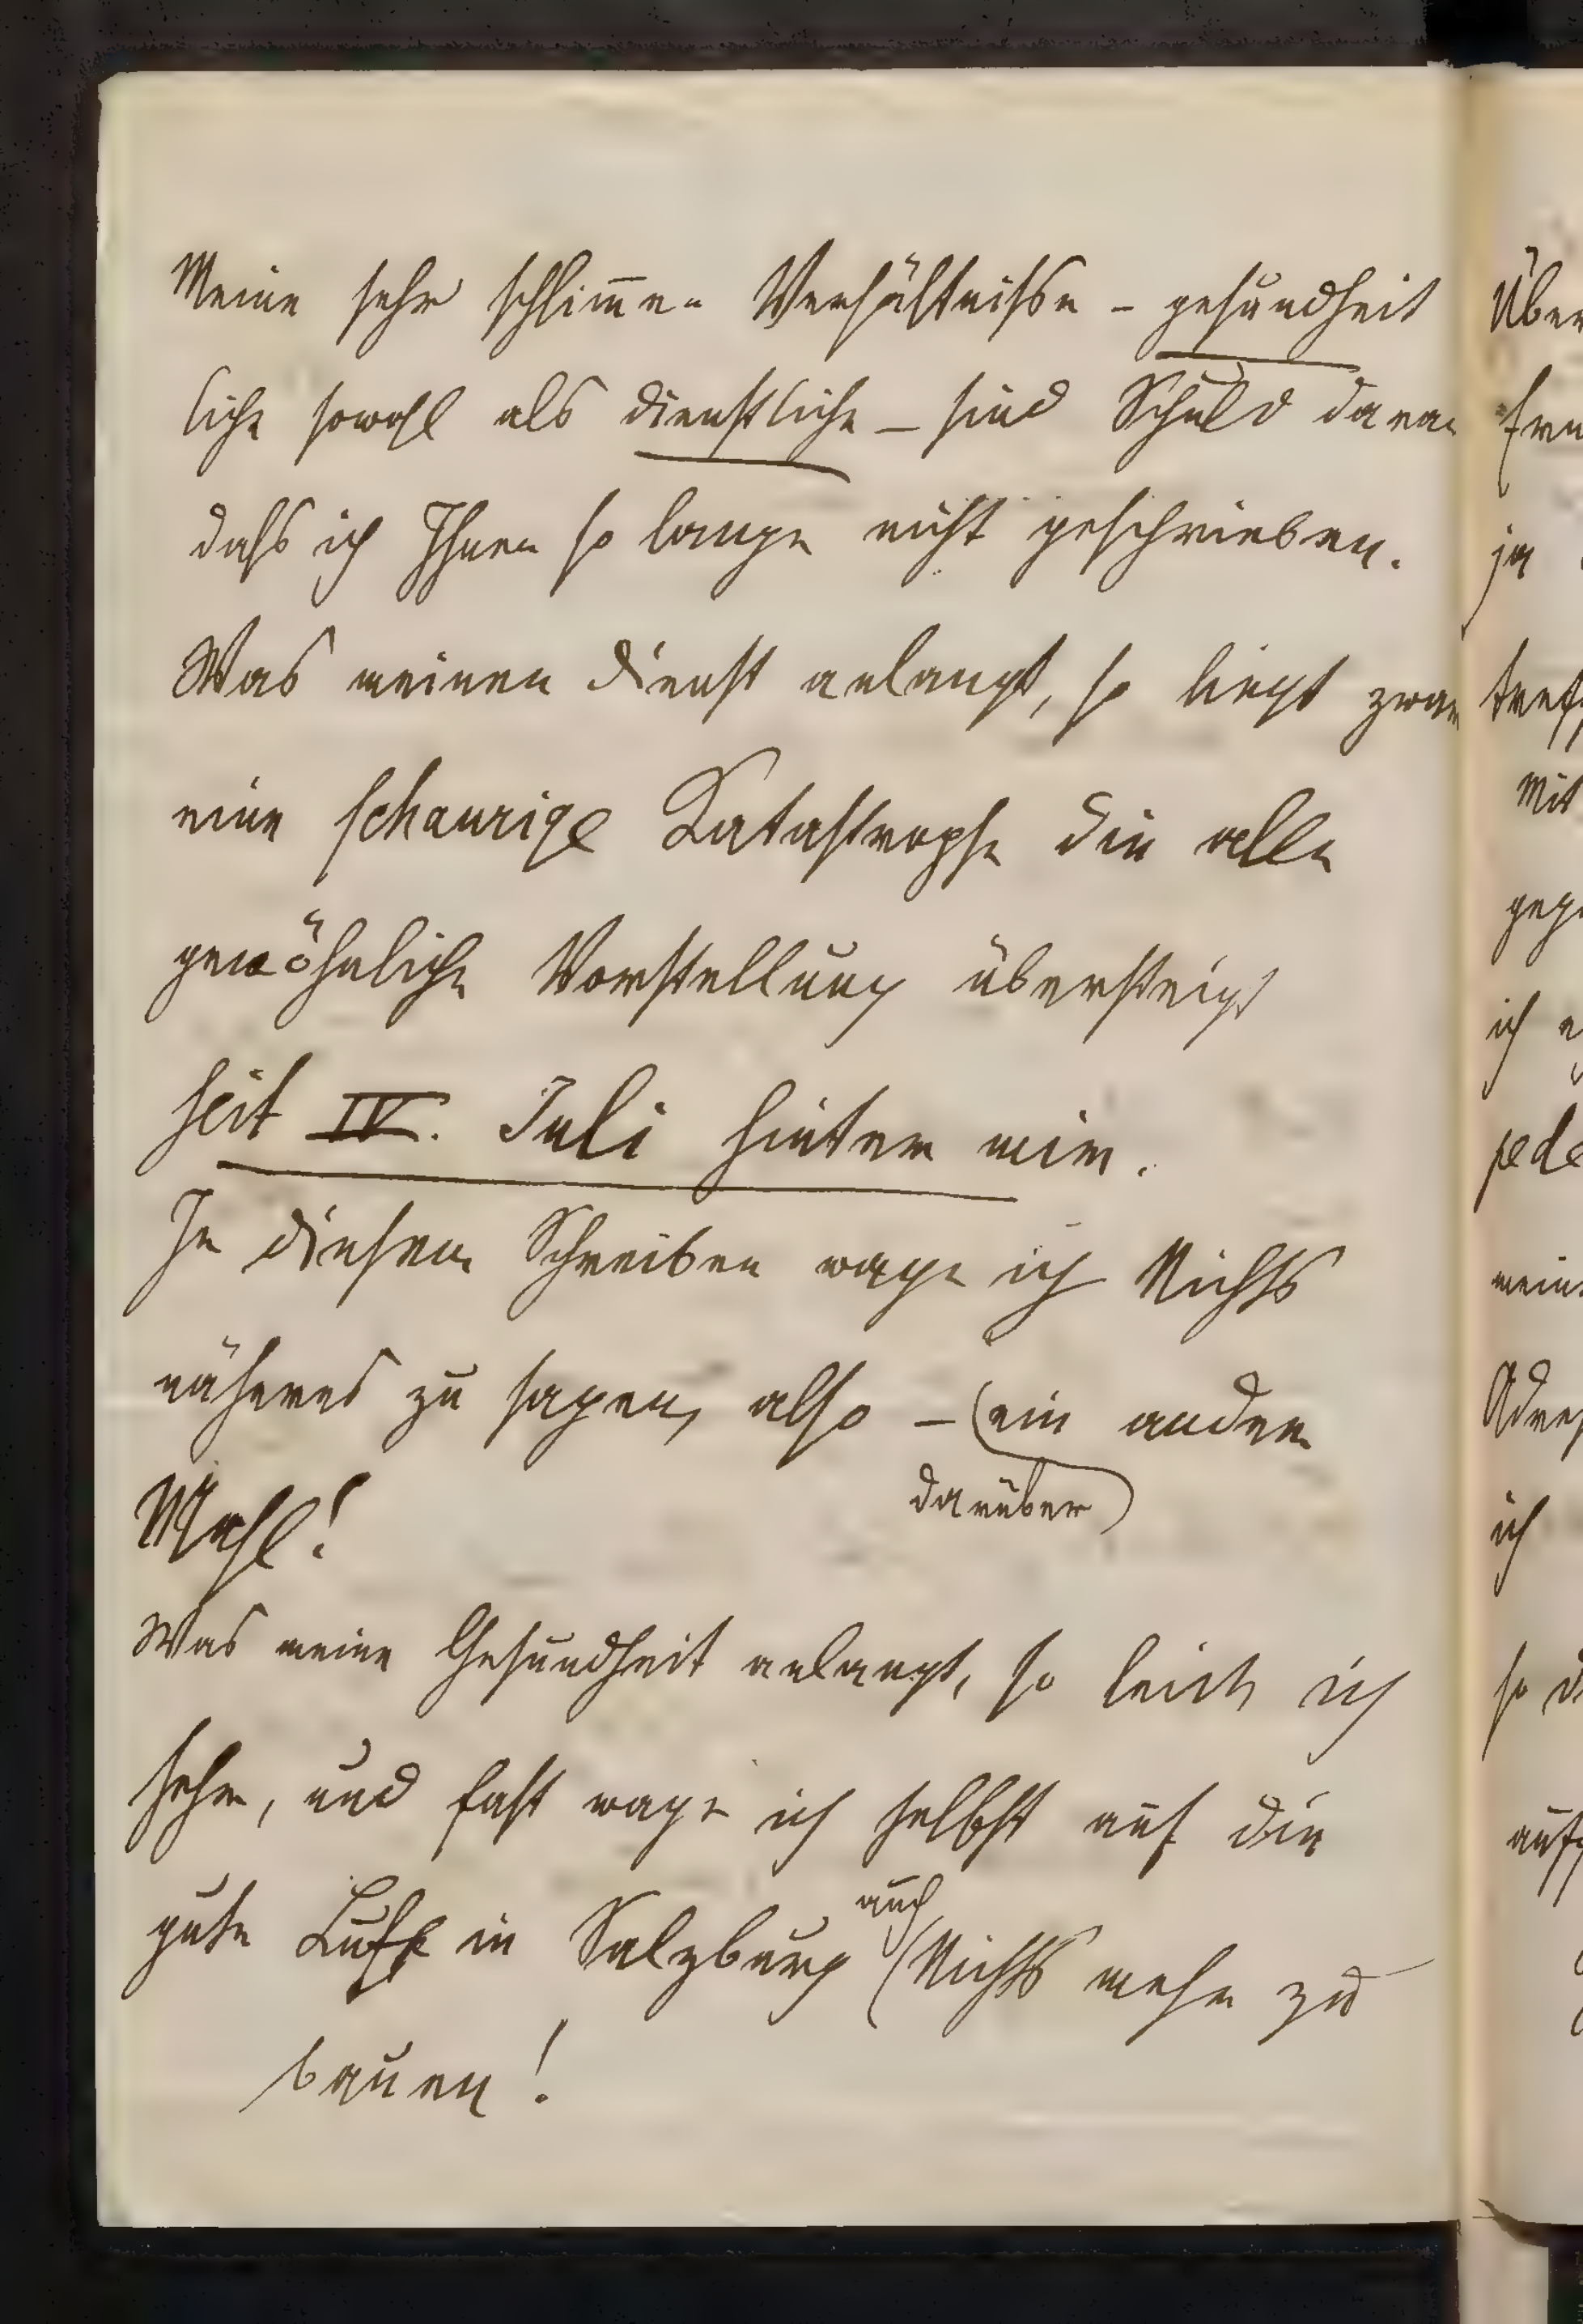 Meine sehr schlim̅en Verhältnisse – gesundheit
liche sowohl als dienstliche – sind Schuld daran
dass ich Ihnen so lange nicht geschrieben.
Was meinen Dienst anlangt, so liegt zwar
eine schaurige Katastrophe die alle
gewöhnliche Vorstellung übersteigt
seit IV. Juli hinter mir.
In diesem Schreiben wage ich Nichts
näheres zu sagen, also – (ein ander
darüber)
Mahl!
Was meine Gesundheit anlangt, so leide ich
sehr, und fast wage ich selbst auf die
auch
gute Luft in Salzburg (Nichts mehr zu
bauen!
Über
ja
treff
Mit
gege
ich
jede
meine
Adres
ich
so d
auf